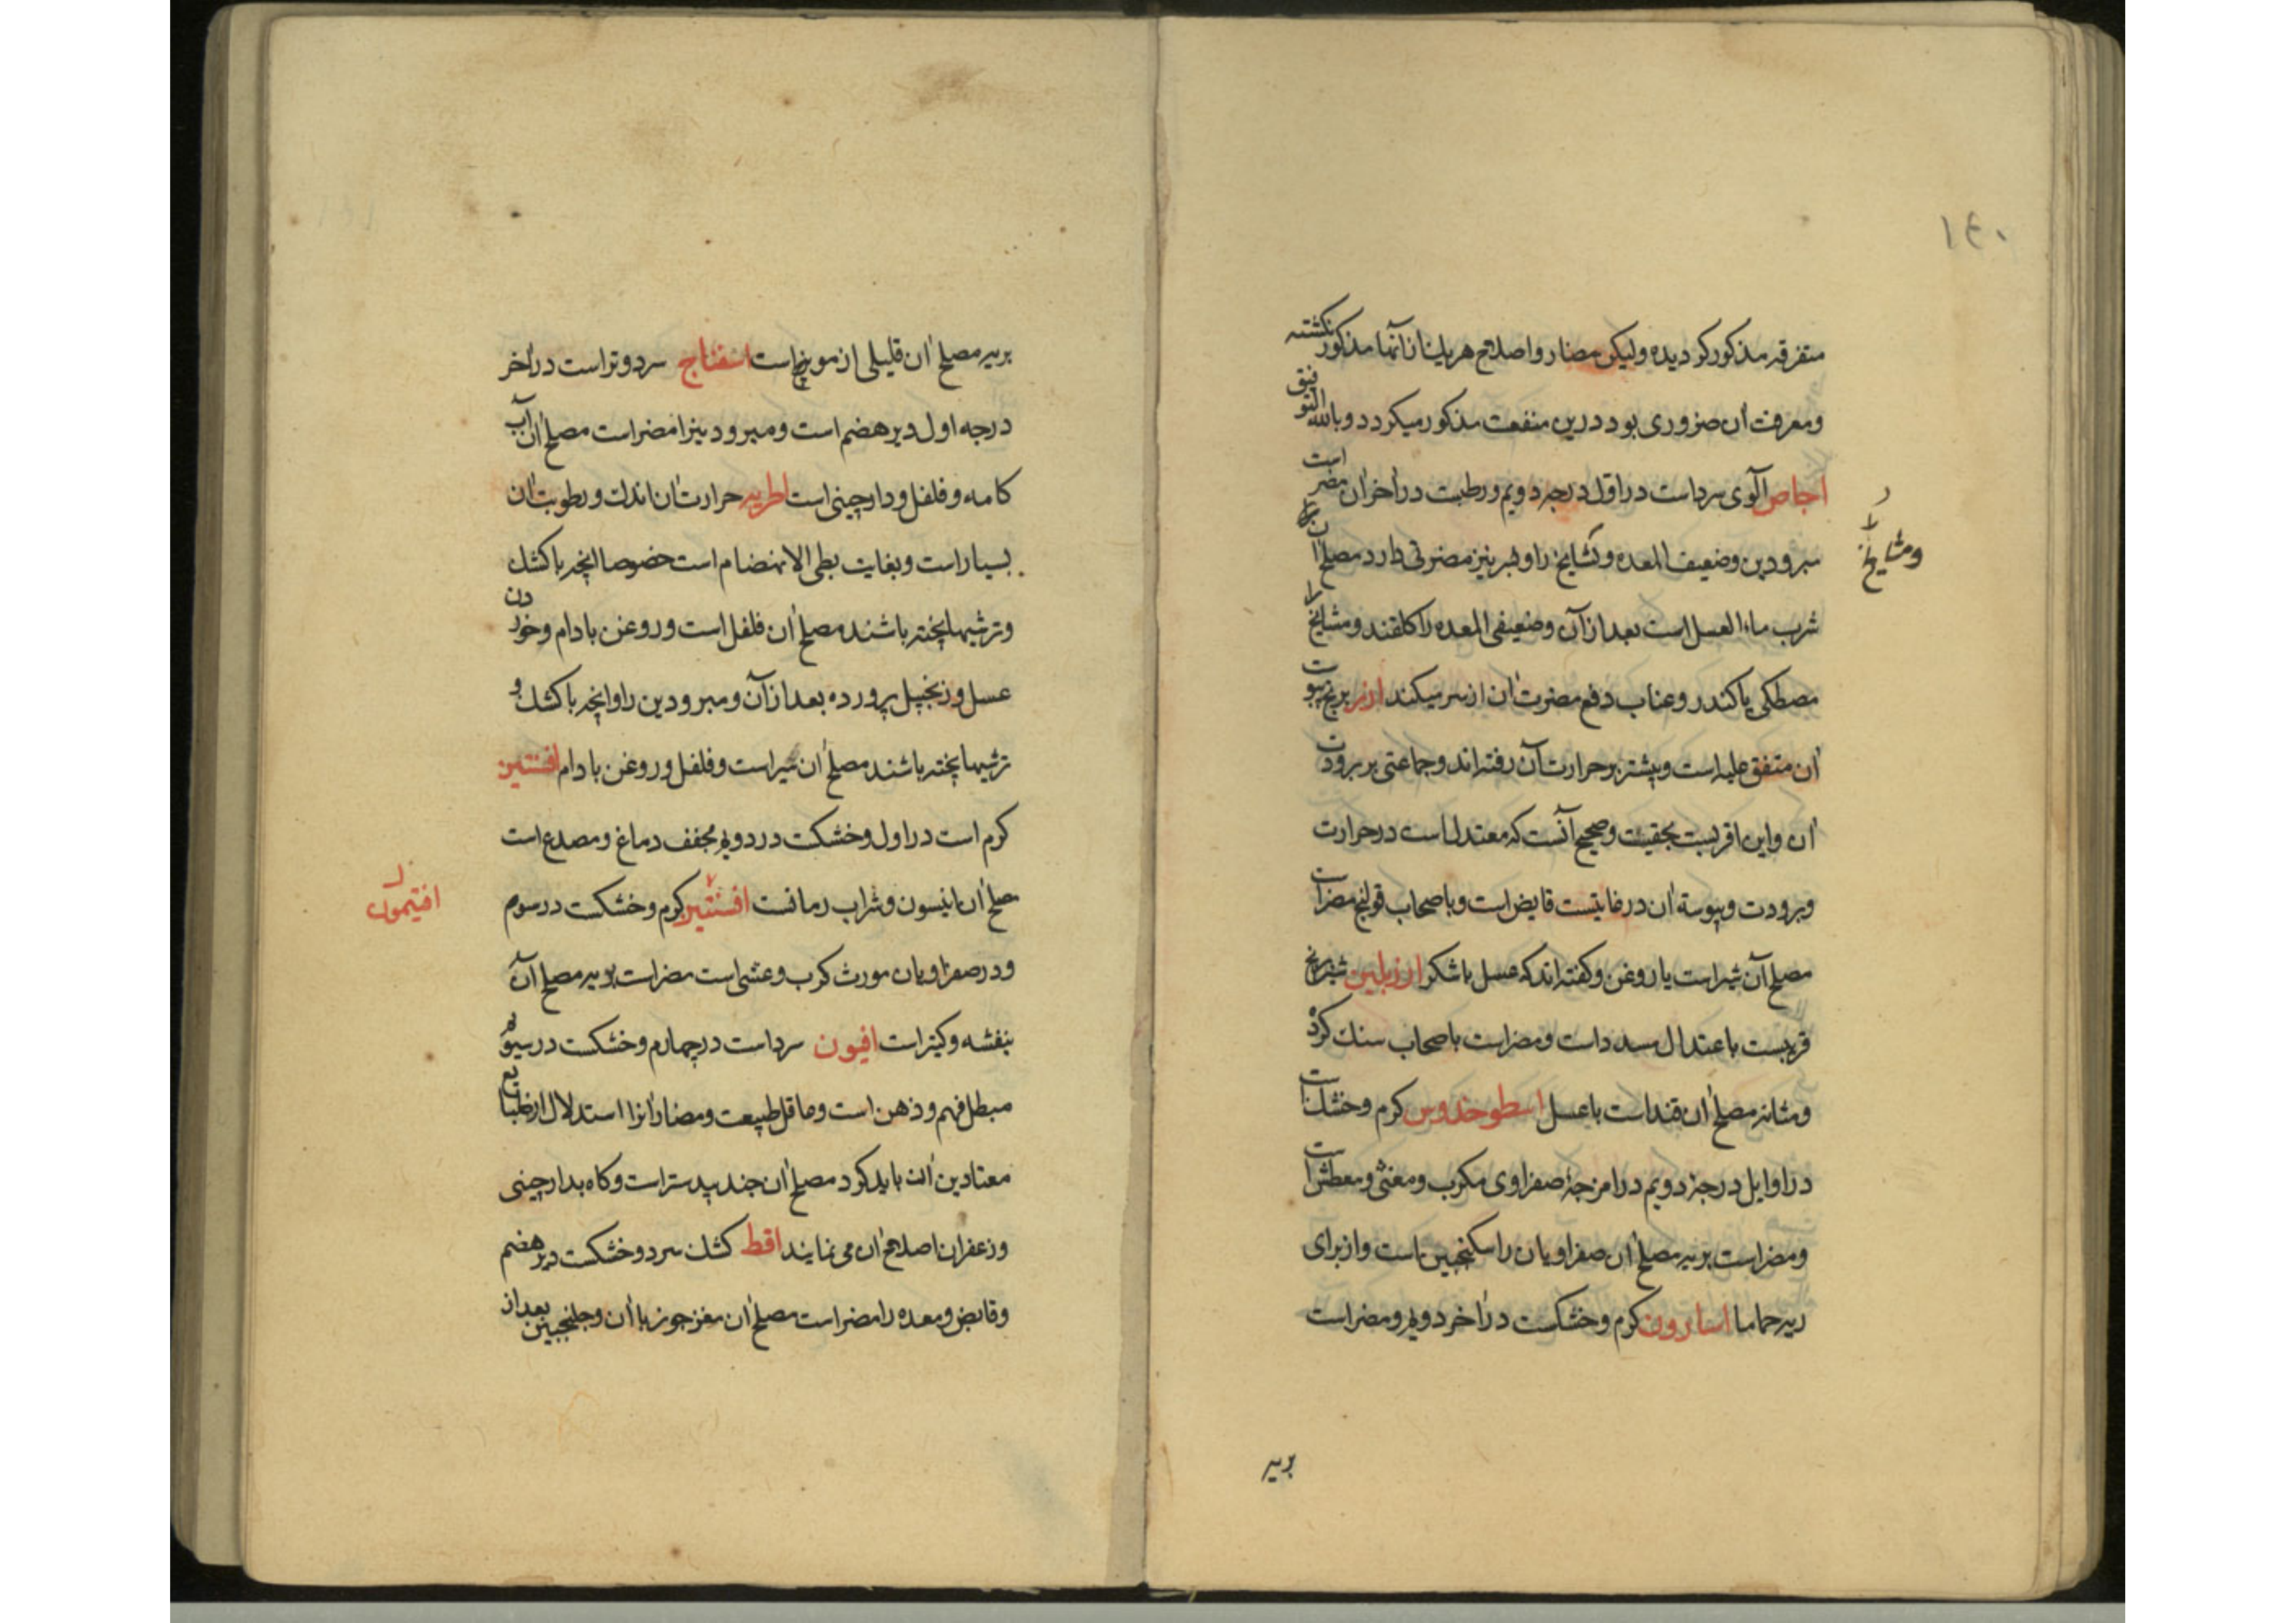 ۱۴۰
متفرقه مذکور کردیده ولیکن مضار واصلاح هریك ازآنها مذکور نکشته
ومعرفت ان ضروری بود درین منفعت مذکور میکردد وبالله التوفیق
اجاص آلوی سرداست دراول درجه دویم ورطبت دراخران مضر است
مبرودین وضعیف المعده وکشایخ را وبربنیز مضرتی دارد مصلح ان
ومشایخ
شرب ماء العسل است بعد ازآن وضعیفی المعده را کلقند ومشایخ را
مصطکی یا کندر وعناب دفع مضرت ان از سر میکند ارز برنج یبوست
ان متفق علیه است وبیشتر بر حرارت آن رفته اند وجماعتی بر برودت
ان واین اقربست بحقیقت وصحیح آنست که معتدل است در حرارت
وبرودت ویبوسة ان در غایتست قابض است وباصحاب قولنج مضر است
مصلح آن شیر است یا روغن وکفته اند که عسل یا شکر ارزبلبن شیر برنج
قریبست باعتدال مسدد است ومضراست باصحاب سنك کرده
ومثانه مصلح ان قند است با عسل اسطوخدوس کرم وخشك است
در اوایل درجهٔ دویم در امزجهٔ صفراوی مکرب ومغثی ومعطش است
ومضراست بریه مصلح ان صفراویان را سکنجبین است واز برای
ریه حماما اسارون کرم وخشکست در آخر دویم ومضراست
بریه
بریه مصلح ان قلیلی از مویزج است اسفناج سرد وتر است در آخر
درجه اول دیر هضم است ومبرودینرا مضر است مصلح ان آب
کامه وفلفل ودارچینی است اطریه حرارت ان اندك ورطوبت ان
بسیار است وبغایت بطی الانهضام است خصوصا انچه با کشك
وترشیها پخته باشند مصلح ان فلفل است وروغن بادام وخوردن
عسل وزنجبیل پرورده بعد ازآن ومبرودین را وانچه با کشك و
ترشیها پخته باشند مصلح ان سیر است وفلفل وروغن بادام افسنتین
کرم است در اول وخشکت در دویم مجفف دماغ ومصدع است
مصلح ان انیسون وشراب رمانست افسنتین کرم وخشکست در سوم
افتیمون
ودر صفراویان مورث کرب وغشی است مضراست بریه مصلح آن
بنفشه وکتیراست افیون سرداست در چهارم وخشکست در سیوم
مبطل فهم وذهن است وماقل طبیعت ومضار انرا استدلال از طبایع
معتادین ان باید کرد مصلح ان جندبیدستر است وکاه بدارچینی
وزعفران اصلاح ان می نمایند اقط کشك سرد وخشکست دیر هضم
وقابض ومعده را مضر است مصلح ان مغز جوز با ان وجلنجبین بعد از